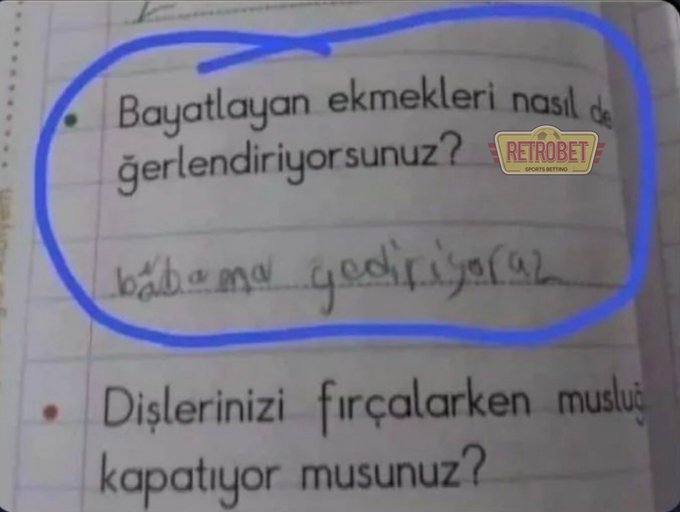 Bayatlayan ekmekleri nasıl de
ğerlendiriyorsunuz?
RETROBET
SPORTS BETTING
babama yediriyoruz
Dişlerinizi fırçalarken musluğ
kapatıyor musunuz?